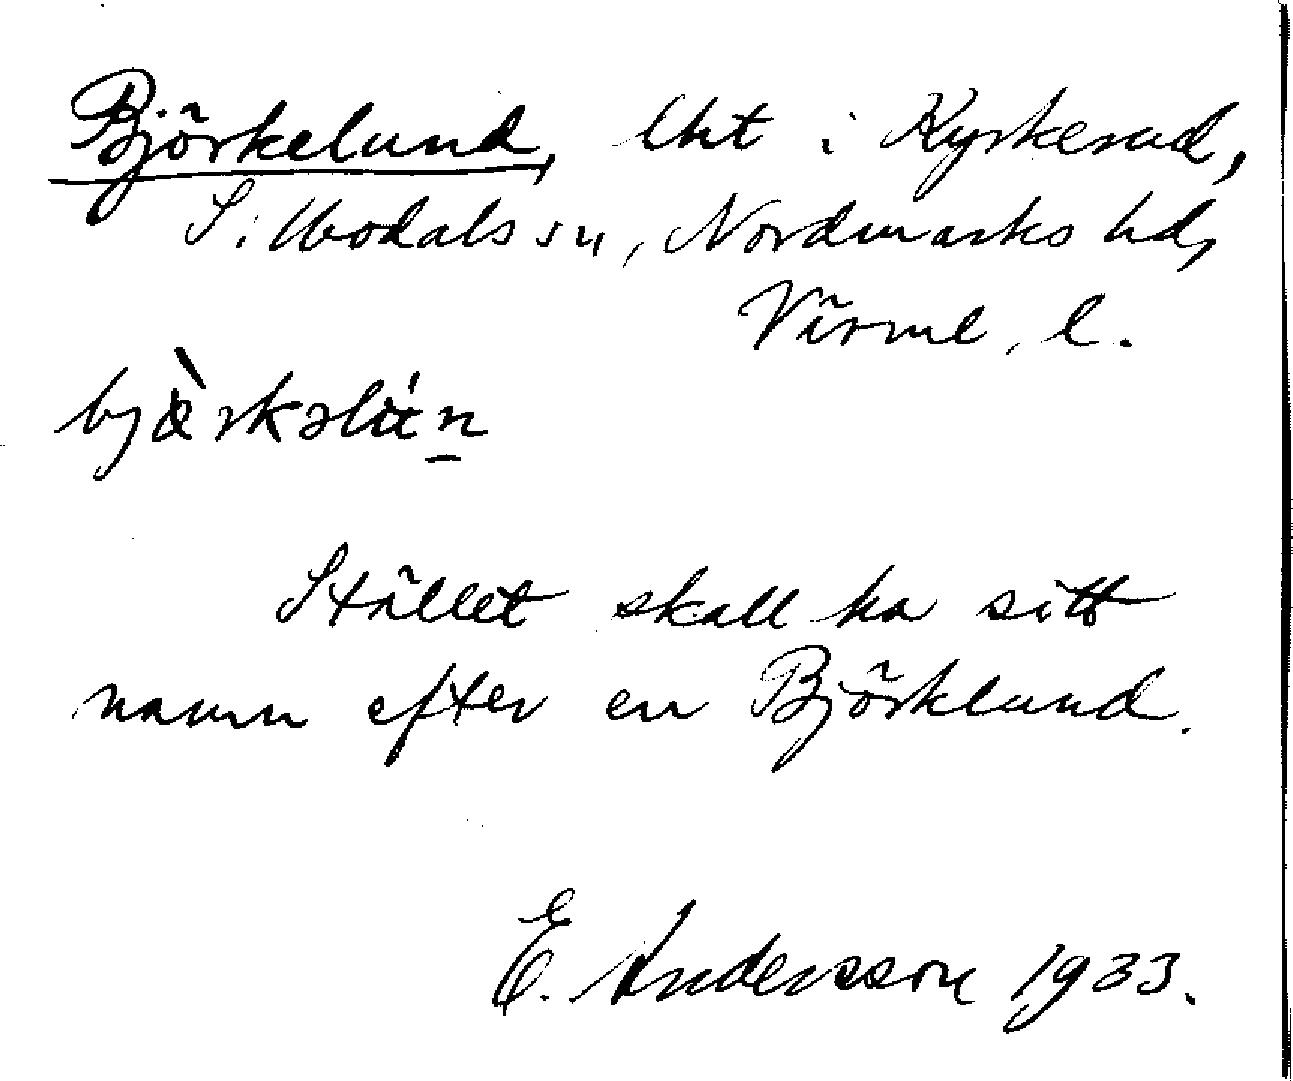 Björkelund, lht i Kyrkerud,
Sillbodals sn, Nordmarks hd,
Värml. l.
Stället skall ha sitt
namn efter en Björklund.
E. Andersson 1933.